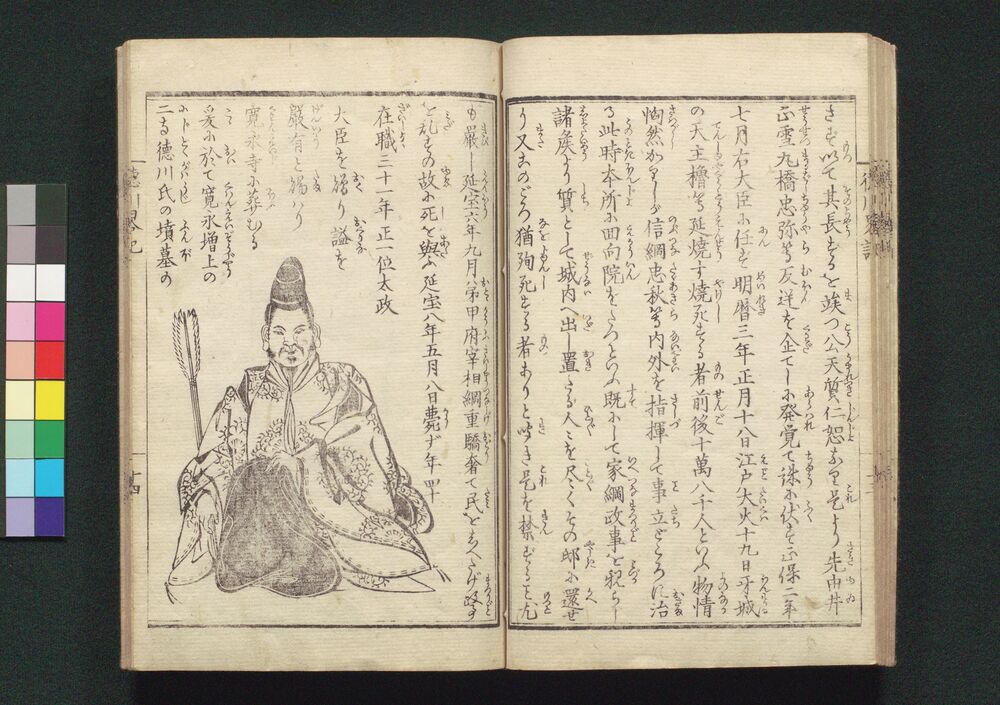 さヾ以て其長ずるを竢つ公天質仁恕なり是より先由井
正雪丸橋忠弥等反逆を企てしに発覚て誅に伏す正保二年
七月右大臣に任ず明暦三年正月十八日江戸大火十九日牙城
の天主櫓等延焼す焼死する者前後十萬八千人といふ物情
恟然かりしが信綱忠秋等内外を指揮して事立どころに治
る此時本所に回向院をたつといふ既にして家綱政事を親らし
諸矦より質として城内へ出し置たる人々を尽くその邸に還せ
り又このごろ猶殉死する者ありと聞き是を禁ずること尤
も厳し延宝六年九月弟甲府宰相綱重驕奢て民をしへたげ政す
を乱すの故に死を與ふ延宝八年五月八日薨ず年四十
在職三十一年正一位太政
大臣を贈り諡を
嚴有と賜はり
寛永寺に葬むる
爰に於て寛永増上の
二寺徳川氏の墳墓の
徳川畧記
十四